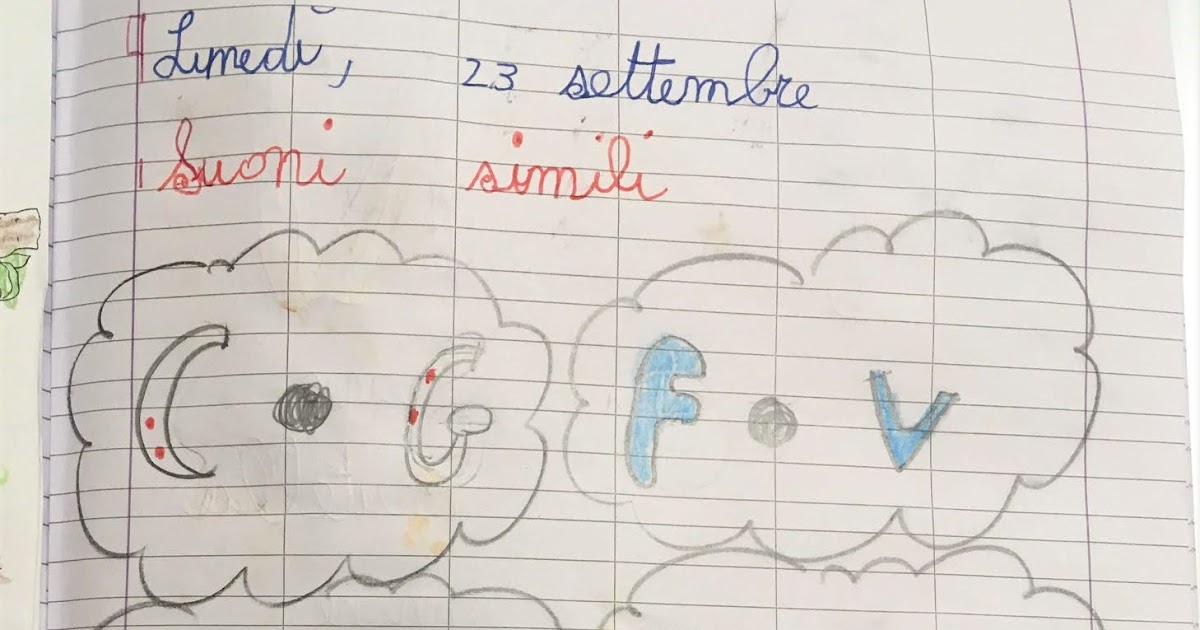 Lunedì, 23 settembre
Suoni simili
C • G F • V